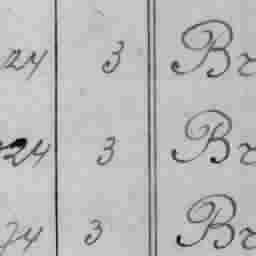 24 3 Br
24 3 Br
74 3 Br